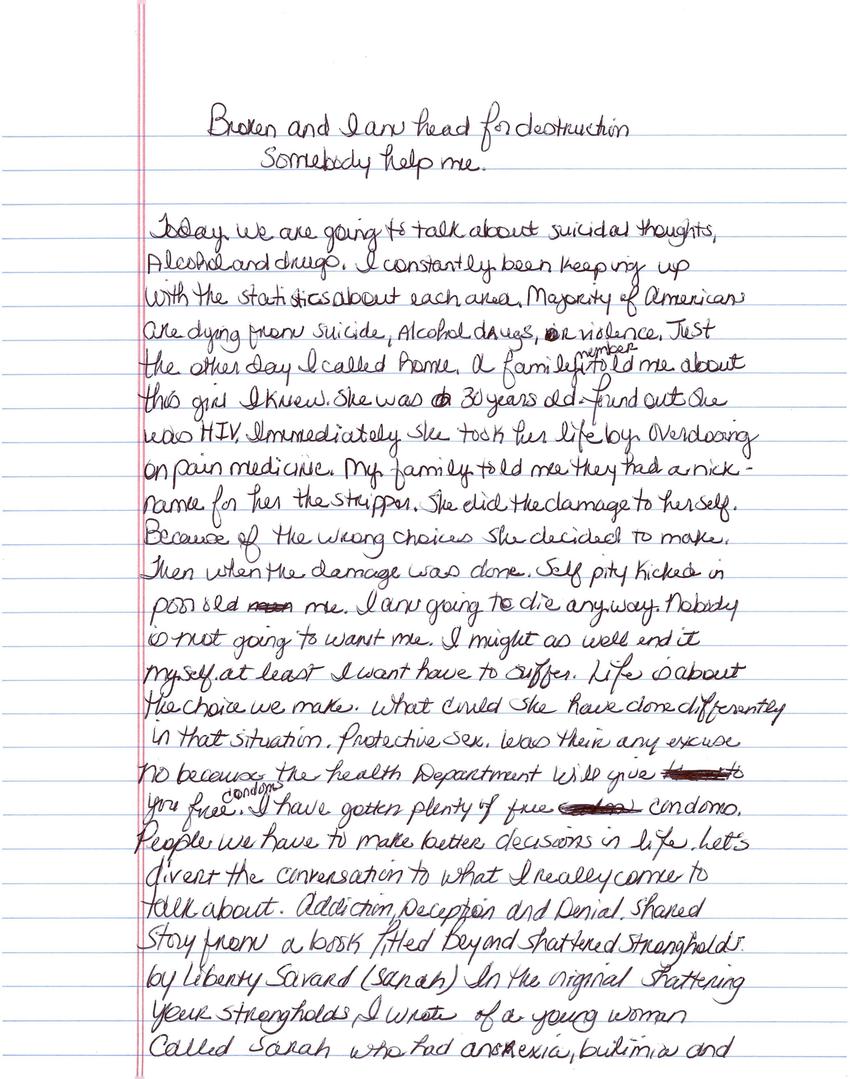 Broken and I am head for destruction
Somebody help me.
Today we are going to talk about suicidal thoughts,
Alcohol and drugs. I constantly been keeping up
with the statistics about each area. Majority of Americans
are dying from suicide, Alcohol drugs, or violence. Just
the other day I called home. A family member told me about
this girl I knew. She was 30 years old. found out she
was HIV. Immediately she took her life by overdosing
on pain medicine. My family told me they had a nick-
name for her the stripper. She did the damage to herself.
Because of the wrong choices she decided to make.
Then when the damage was done. Self pity kicked in
poor old me. I am going to die anyway. Nobody
is not going to want me. I might as well end it
myself. at least I want have to suffer. Life is about
the choice we make. What could she have done differently
in that situation. Protective sex. Was their any excuse
no because the health Department will give
you free condoms. I have gotten plenty of free condoms.
People we have to make better decisions in life. Let's
divert the conversation to what I really come to
talk about. Addiction, Deception and Denial. Shared
Story from a book titled Beyond shattered strongholds.
by Liberty Savard (Sarah) In the original shattering
your strongholds, I wrote of a young woman
Called Sarah who had anorexia, bulimia and